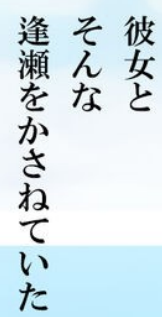 彼女と
そんな
逢瀬をかさねていた